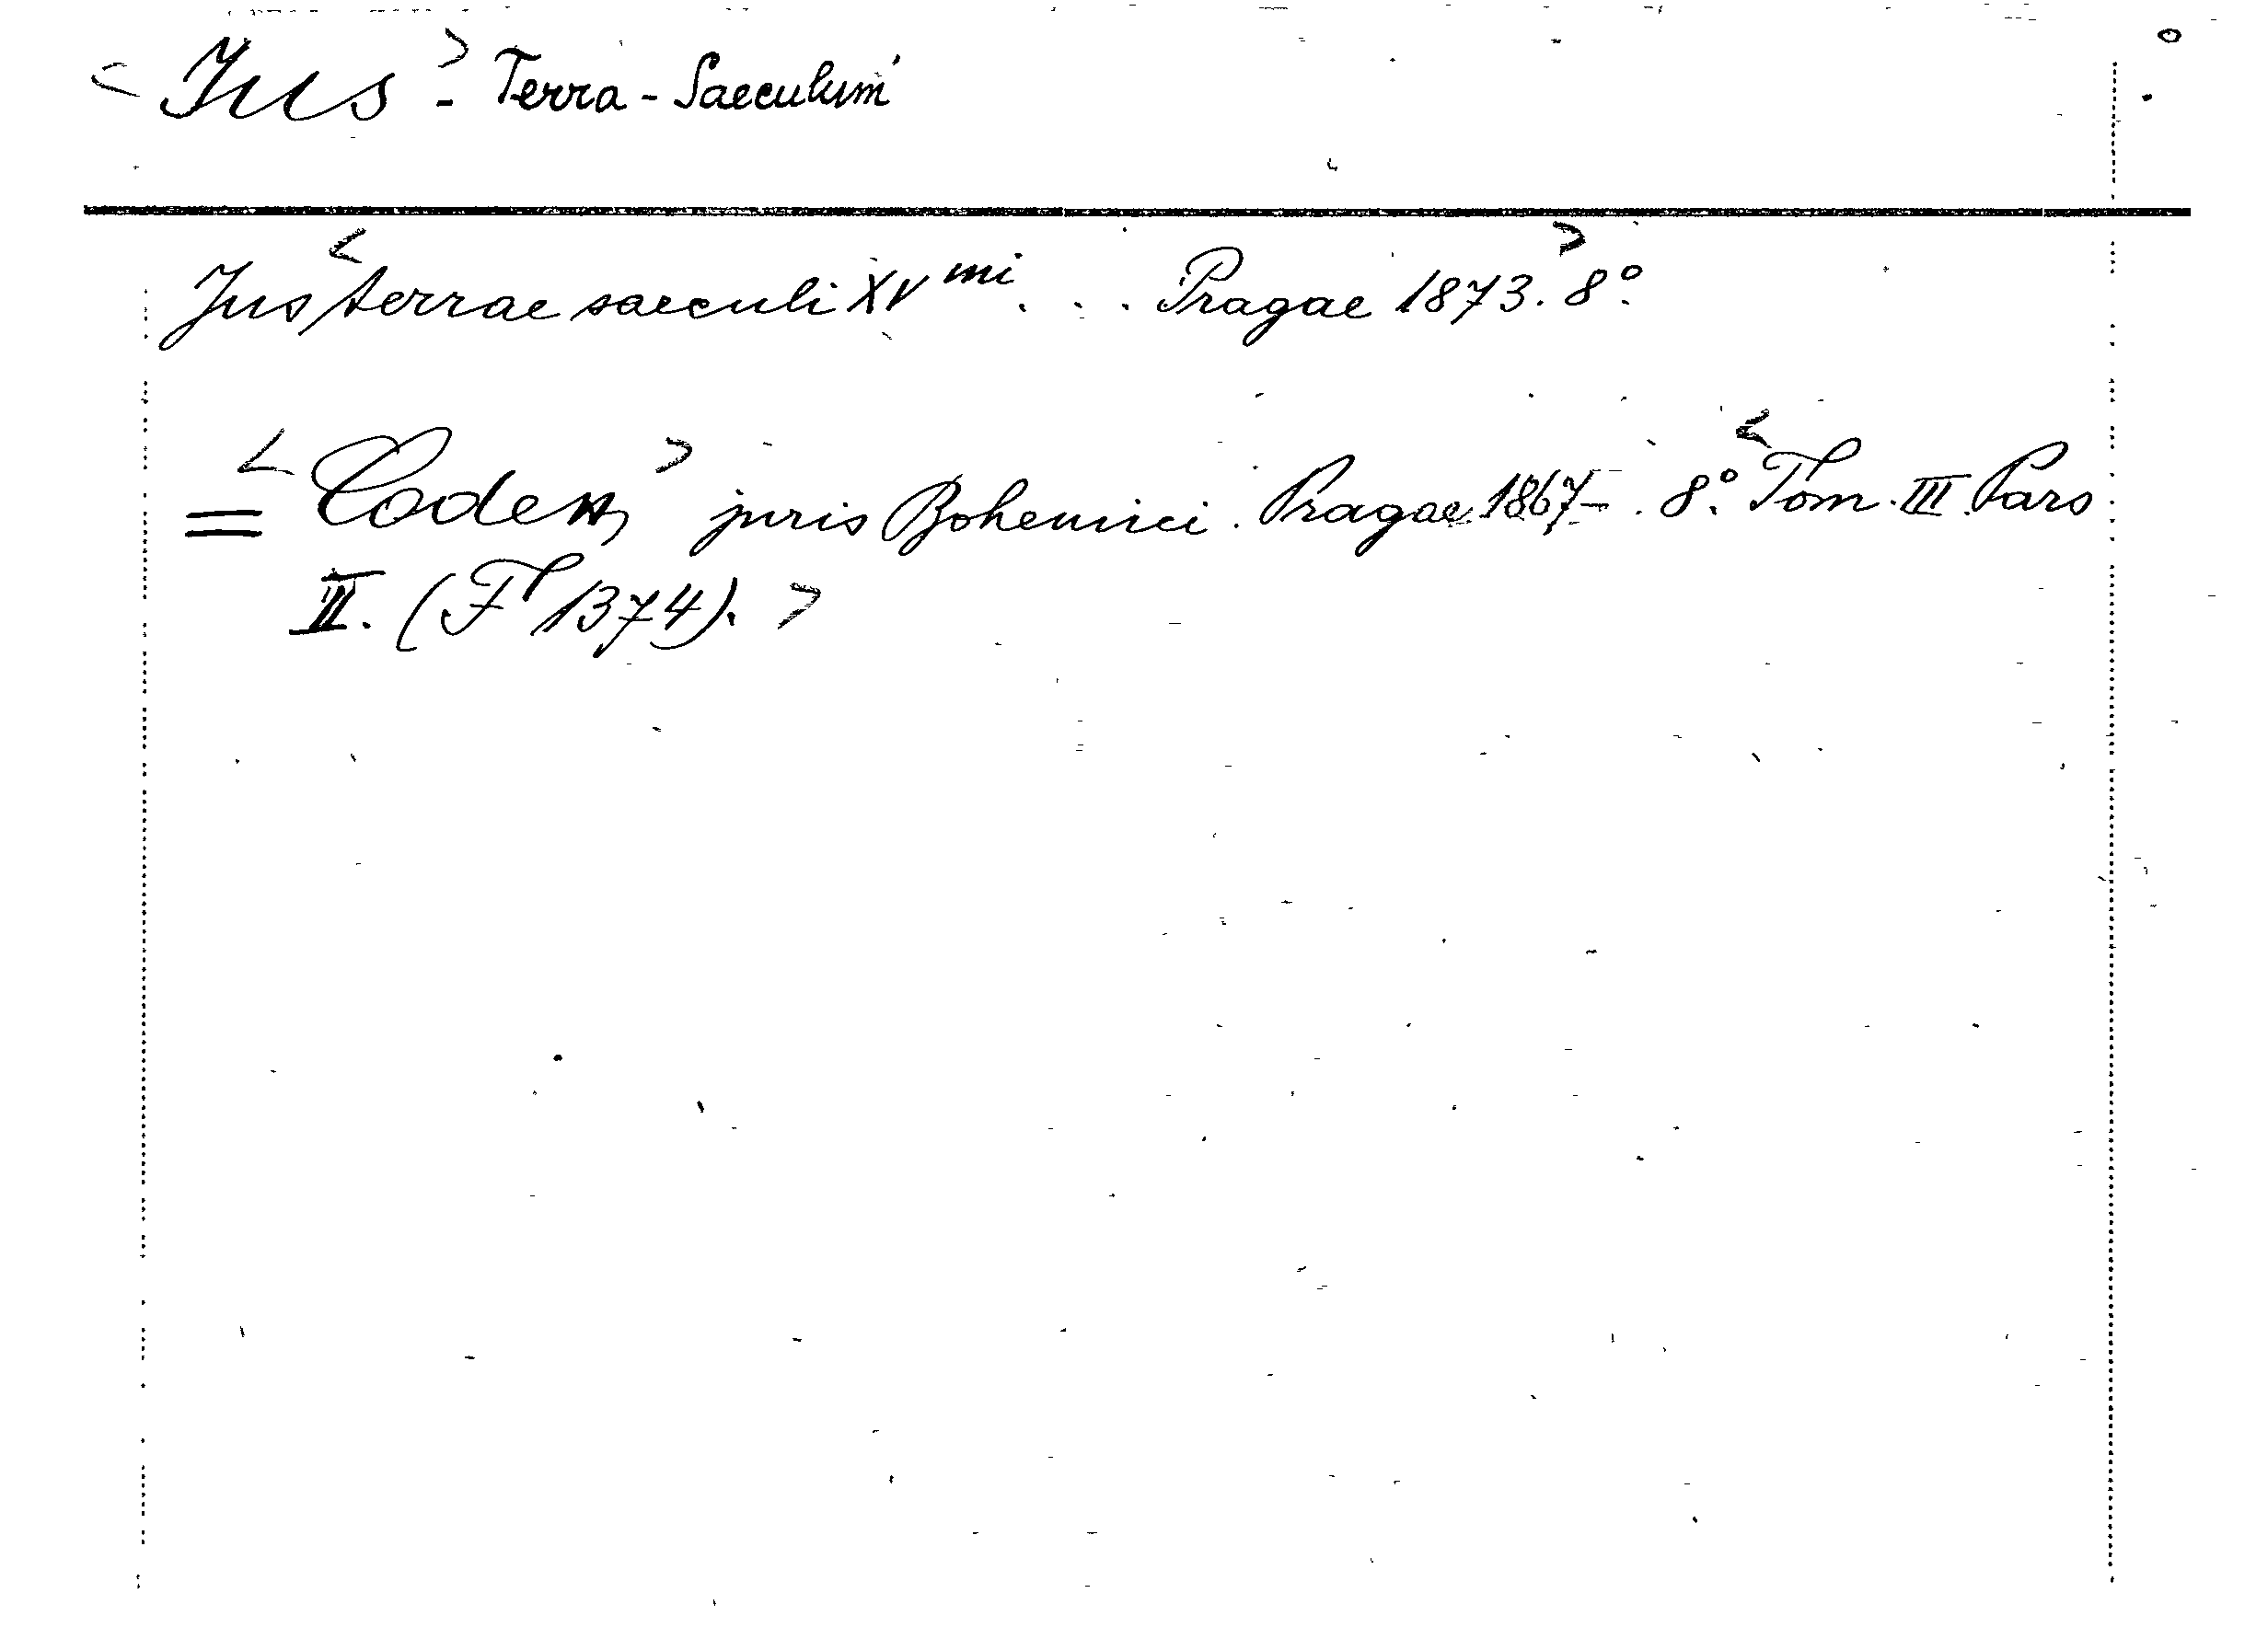 < Jus > - Terra - Saeculum
Jus < terrae saeculi XV mi . . . Pragae 1873. > 8º.
= < Codex > juris Bohemici. Pragae 1867- . 8º. < Tom. III Pars
II. (F 1374). >